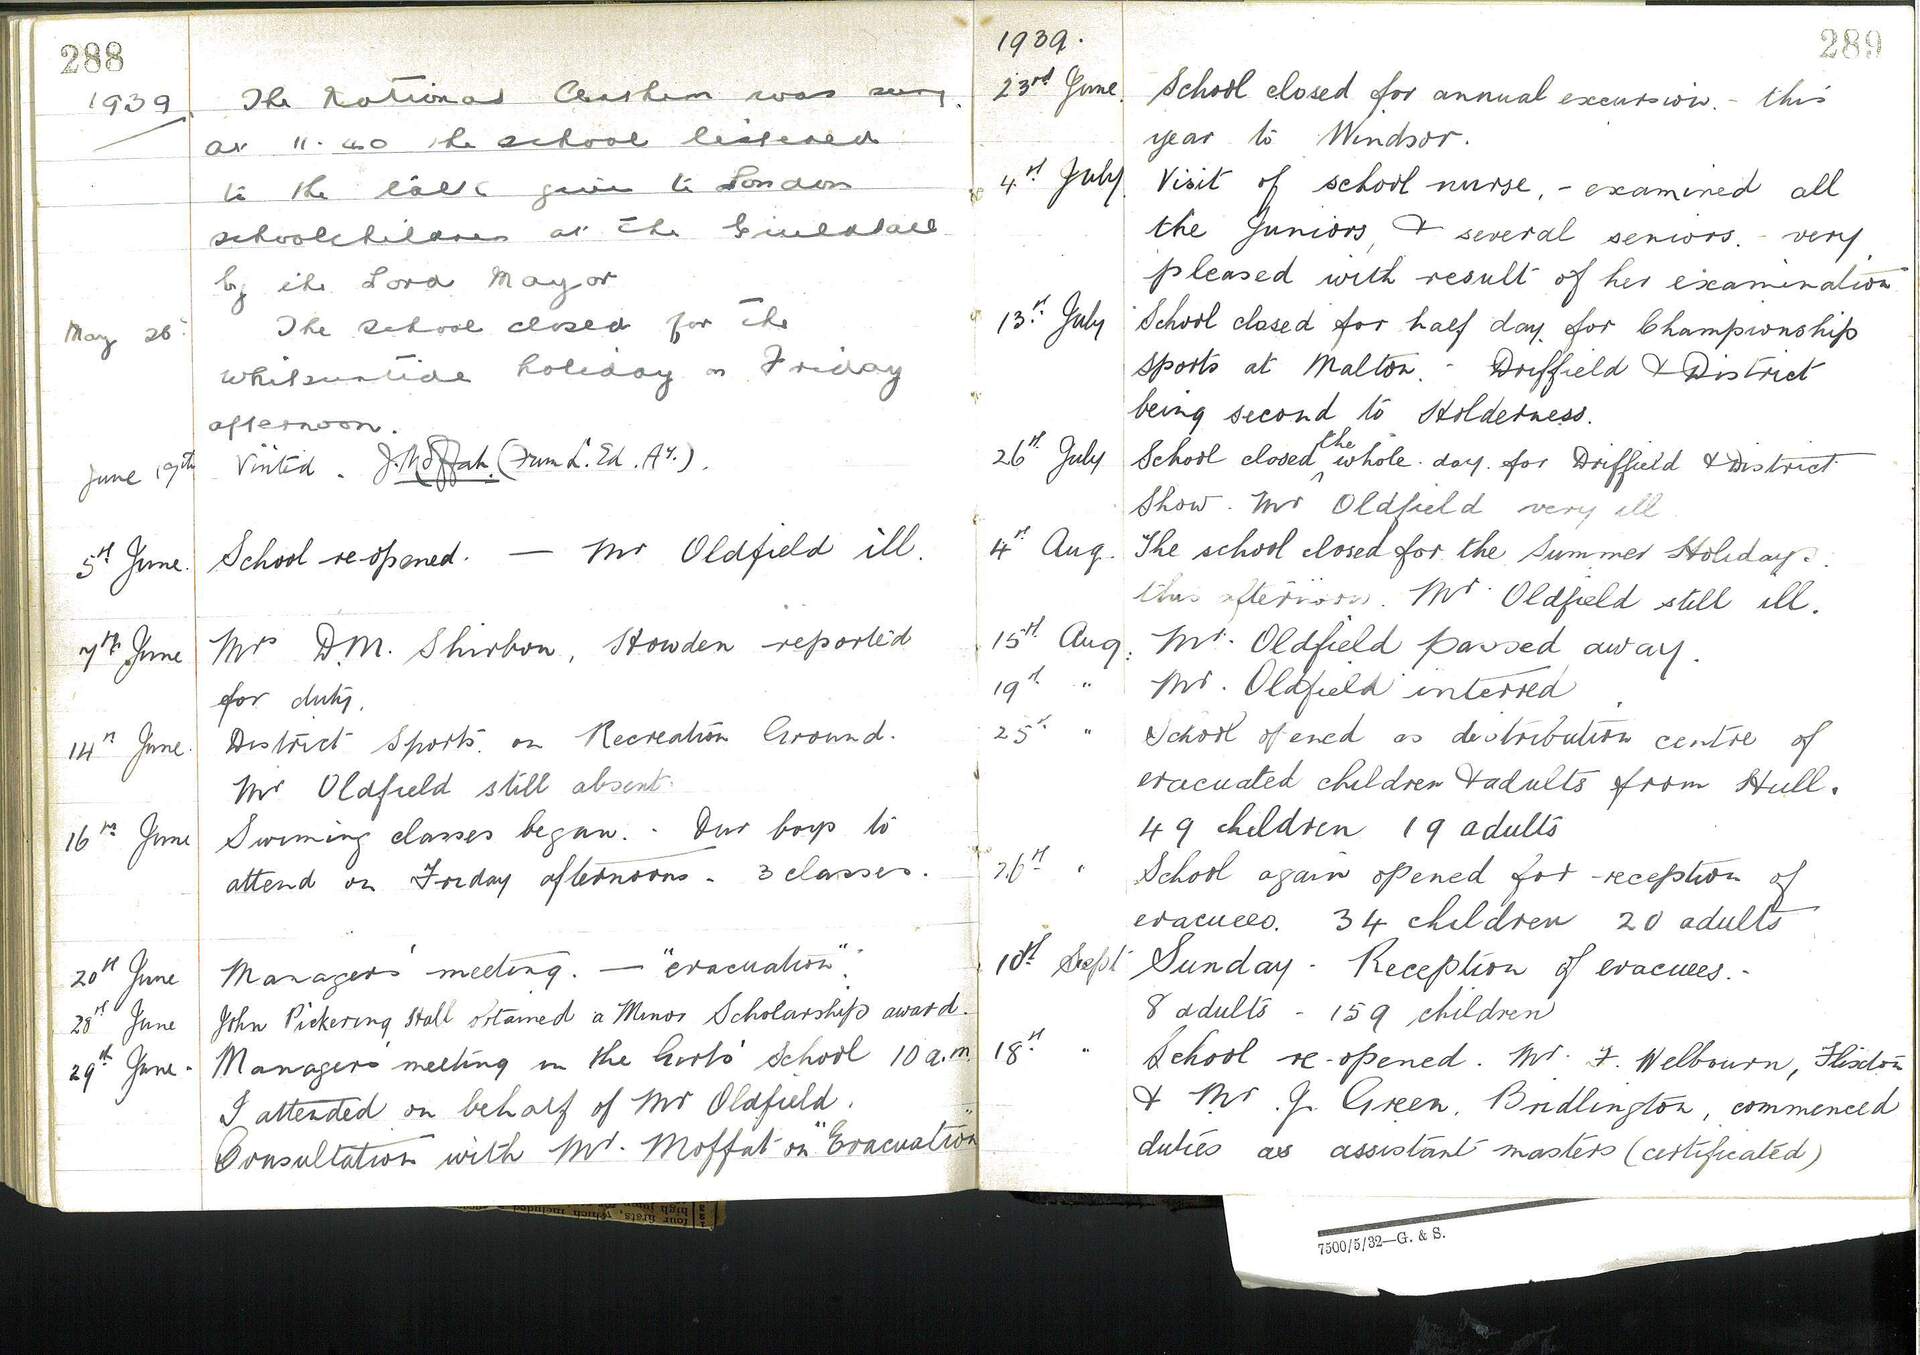 288
1939.
The National Anthem was sung.
At 11.40 the school listened
to the talk given to London
schoolchildren at the Guildhall
by the Lord Mayor
May 26. The school closed for the
Whitsuntide holiday on Friday
afternoon.
June 19th Visited. J. Moffat. (from L. Ed. Ay.).
5th June. School re-opened. — Mr Oldfield ill.
7th June Mrs D.M. Shirbon, Howden reported
for duty.
14th June. District Sports on Recreation Ground.
Mr Oldfield still absent.
16th June Swiming classes began. - Our boys to
attend on Friday afternoons - 3 classes.
20th June Managers' meeting. — "evacuation".
28th June John Pickering Hall obtained a Minor Scholarship award.
29th June - Managers' meeting in the Girls' School 10 a.m.
I attended on behalf of Mr Oldfield.
Consultation with Mr. Moffat on "Evacuation"
289
1939.
23rd June. School closed for annual excursion. - this
year to Windsor.
4th July. Visit of school nurse, - examined all
the Juniors, & several seniors. - very
pleased with result of her examination
13th July School closed for half day for Championship
sports at Malton. - Driffield & District
being second to Holderness.
26th July School closed the whole day for Driffield & District
Show. Mr Oldfield very ill
4th Aug. The school closed for the Summer Holidays.
this afternoon. Mr Oldfield still ill.
15th Aug. Mr. Oldfield passed away.
19th " Mr. Oldfield interred.
25th " School opened as distribution centre of
evacuated children & adults from Hull.
49 children 19 adults
26th " School again opened for reception of
evacuees. 34 children 20 adults
10th Sept Sunday - Reception of evacuees. -
8 adults - 159 children
18th " School re-opened. Mr. F. Welbourn, Flixton
& Mr J. Green, Bridlington, commenced
duties as assistant masters (certificated)
7500/5/32—G. & S.